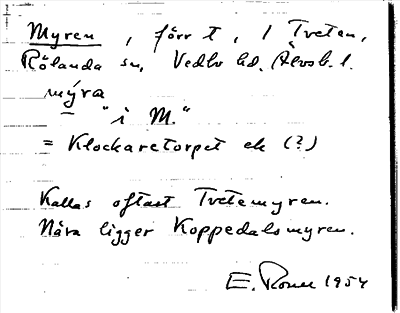 Myren, förr t, / Tveten,
Rölanda sn, Vedbo hd. Älvsb. l.
mýra
"i M."
= Klockaretorpet ek (?)
Kallas oftast Tvetemyren.
Nära ligger Koppedalsmyren.
E. 1954